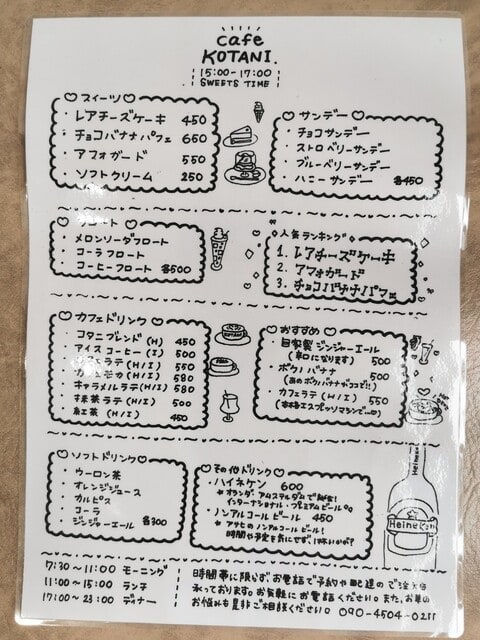 cafe
KOTANI.
15:00-17:00
SWEETS TIME
スイーツ
・レアチーズケーキ 450
・チョコバナナパフェ 650
・アフォガード 550
・ソフトクリーム 250
サンデー
・チョコサンデー
・ストロベリーサンデー
・ブルーベリーサンデー
・ハニーサンデー 各450
フロート
・メロンソーダフロート
・コーラフロート
・コーヒーフロート 各500
人気ランキング
1. レアチーズケーキ
2. アフォガード
3. チョコバナナパフェ
カフェドリンク
・コタニブレンド(H) 450
・アイスコーヒー(I) 500
ラテ(H/I) 550
・カフェモカ(H/I) 580
・キャラメルラテ(H/I) 580
・抹茶ラテ(H/I) 500
・紅茶(H/I) 450
おすすめ
・自家製ジンジャーエール
(辛口になります) 500
・ボクノバナナ 500
(あのボクノバナナがココで!!)
・カフェラテ(H/I) 550
(本格エスプレッソマシンで)
ソフトドリンク
・ウーロン茶
・オレンジジュース
・カルピス
・コーラ
・ジンジャーエール 各300
その他ドリンク
・ハイネケン 600
オランダ・アムステルダムで誕生!
インターナショナル・プレミアムビール
・ノンアルコールビール 450
アサヒのノンアルコールビール!
時間や予定を気にせず1杯いかが?
Heineken
7:30~11:00 モーニング
11:00~15:00 ランチ
17:00~23:00 ディナー
時間帯に限らずお電話で予約や配達のご注文
承っております。お気軽にお電話ください。また、お車の
お悩みも是非ご相談ください。090-4504-0211